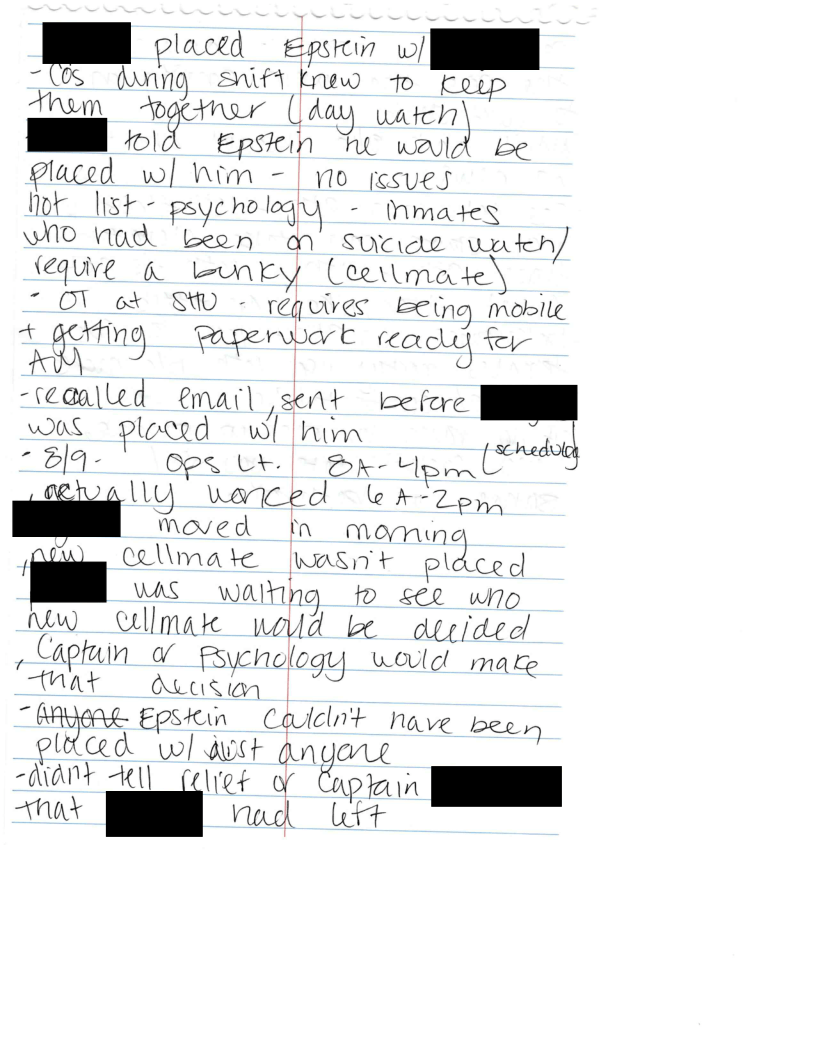 placed Epstein w/
- COs during shift knew to keep
them together (day watch)
told Epstein he would be
placed w/ him - no issues
hot list - psychology - inmates
who had been on suicide watch/
require a bunky (cellmate)
- OT at SHU - requires being mobile
+ getting paperwork ready for
AM
- recalled email, sent before
was placed w/ him
- 8/9 - Ops Lt. 8A-4pm (scheduled
, actually worked 6A-2pm
moved in morning
, new cellmate wasn't placed
was waiting to see who
new cellmate would be decided
, Captain or Psychology would make
that decision
- Anyone Epstein couldn't have been
placed w/ just anyone
- didn't tell relief or Captain
that had left